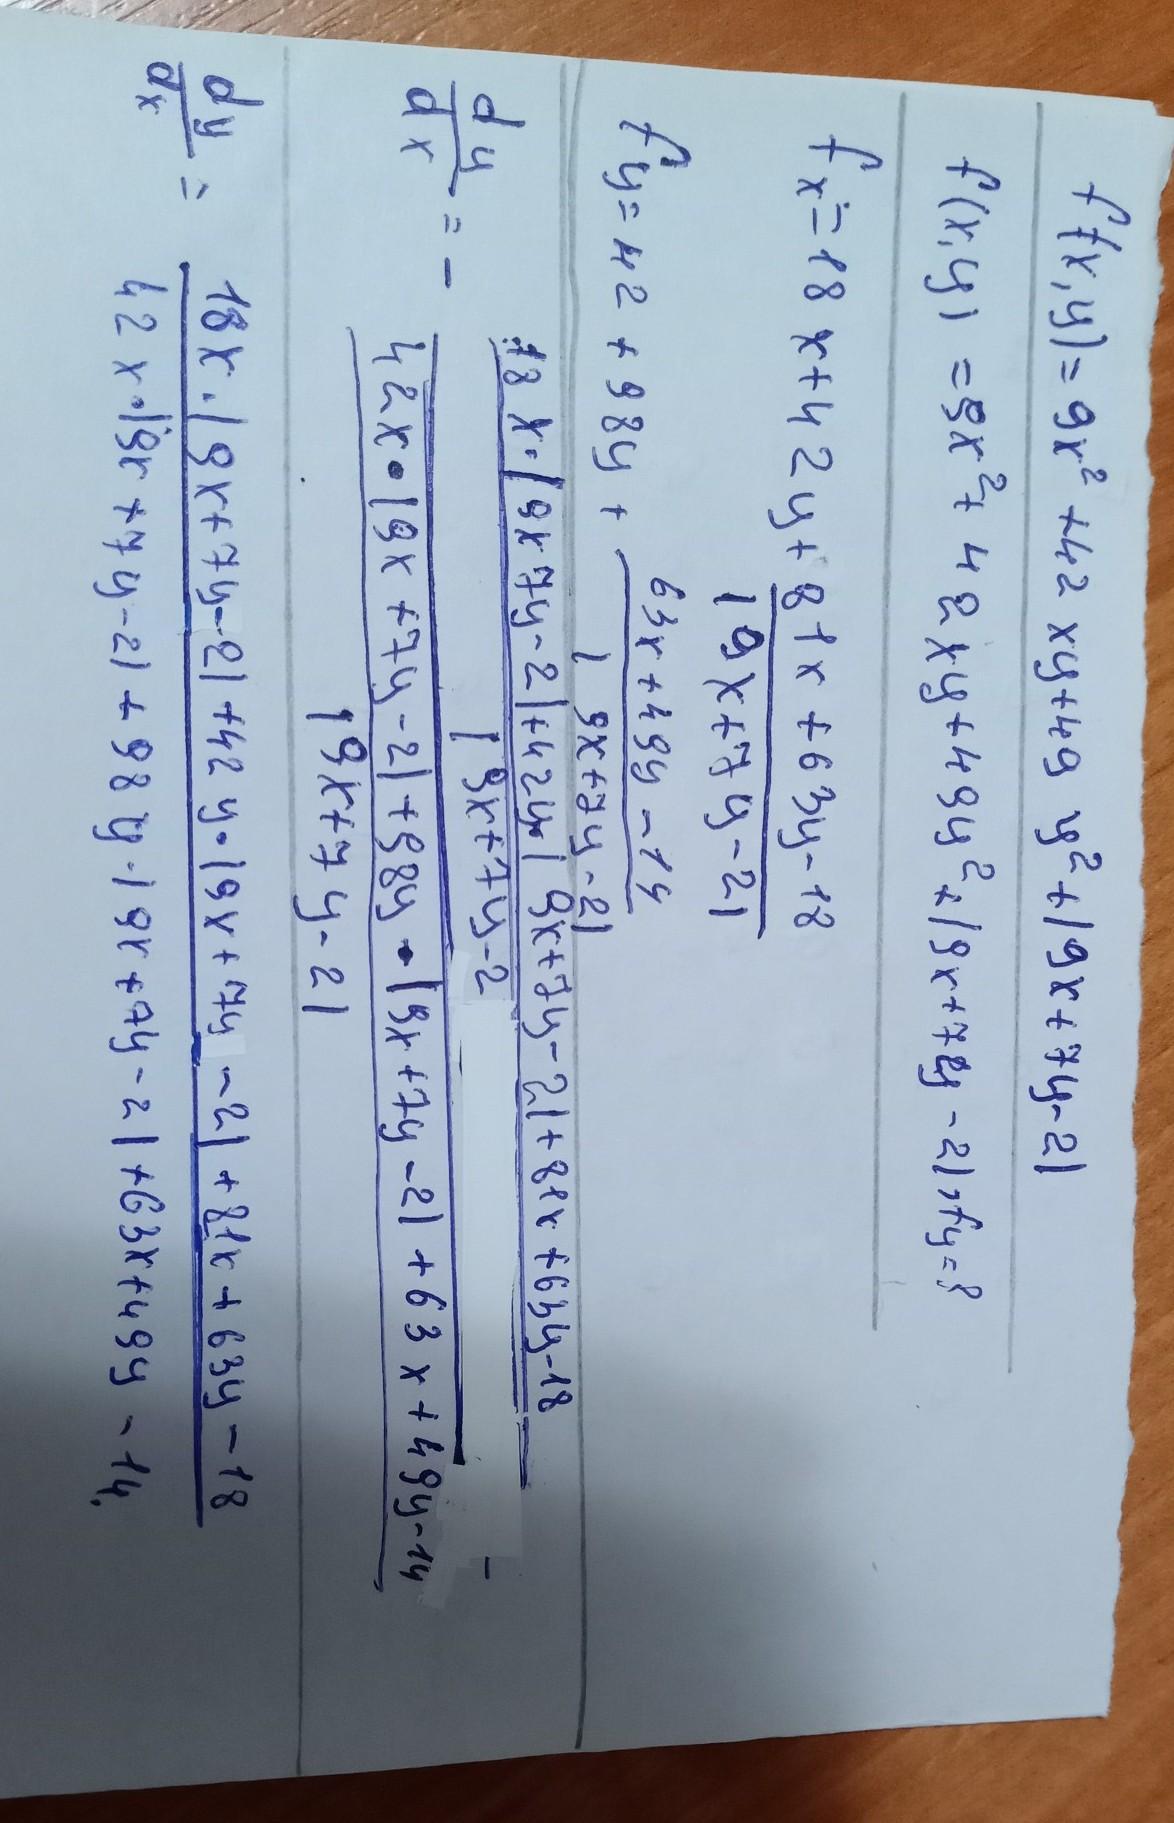 f(x,y)=9x²+42xy+49y²+|9x+7y-2|
f(x,y)=9x²+42xy+49y²+|9x+7y-2|, fy=?
fx=18x+42y+ 81x+63y-18
|9x+7y-2|
fy=42+98y+ 63x+49y-14
|9x+7y-2|
18x·|9x 7y-2|+42y·|9x+7y-2|+81x+63y-18
|9x+7y-2
dy/dx = -
42x·|9x+7y-2|+98y·|9x+7y-2|+63x+49y-14
|9x+7y-2|
dy/dx = 18x·|9x+7y-2|+42y·|9x+7y-2|+81x+63y-18
42x·|9x+7y-2|+98y·|9x+7y-2|+63x+49y-14.